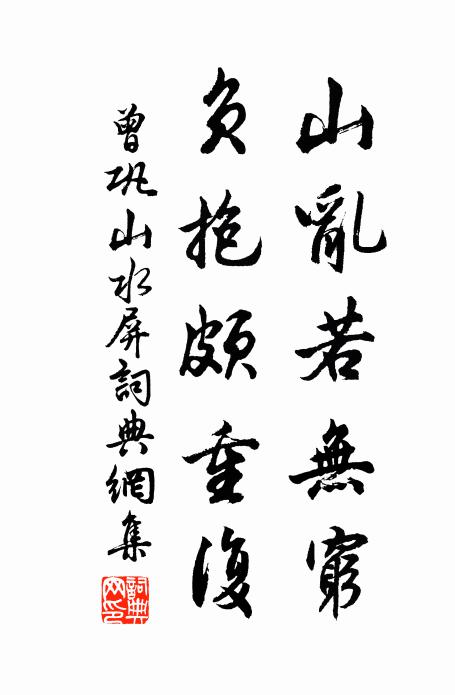 山亂若無窮
負抱頗重復
曾巩山水屏詞典網集
詞典網印